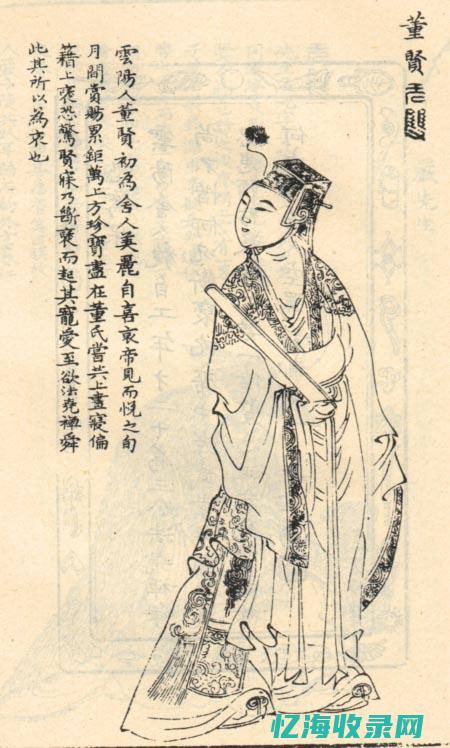 董賢
雲陽人董賢初為舍人美麗自喜哀帝見而悅之旬
月間賞賜累鉅萬上方珍寶盡在董氏嘗共上晝寢偏
籍上褎恐驚賢寐乃斷褎而起其寵愛至欲法堯禪舜
此其所以為哀也
忆海收录网